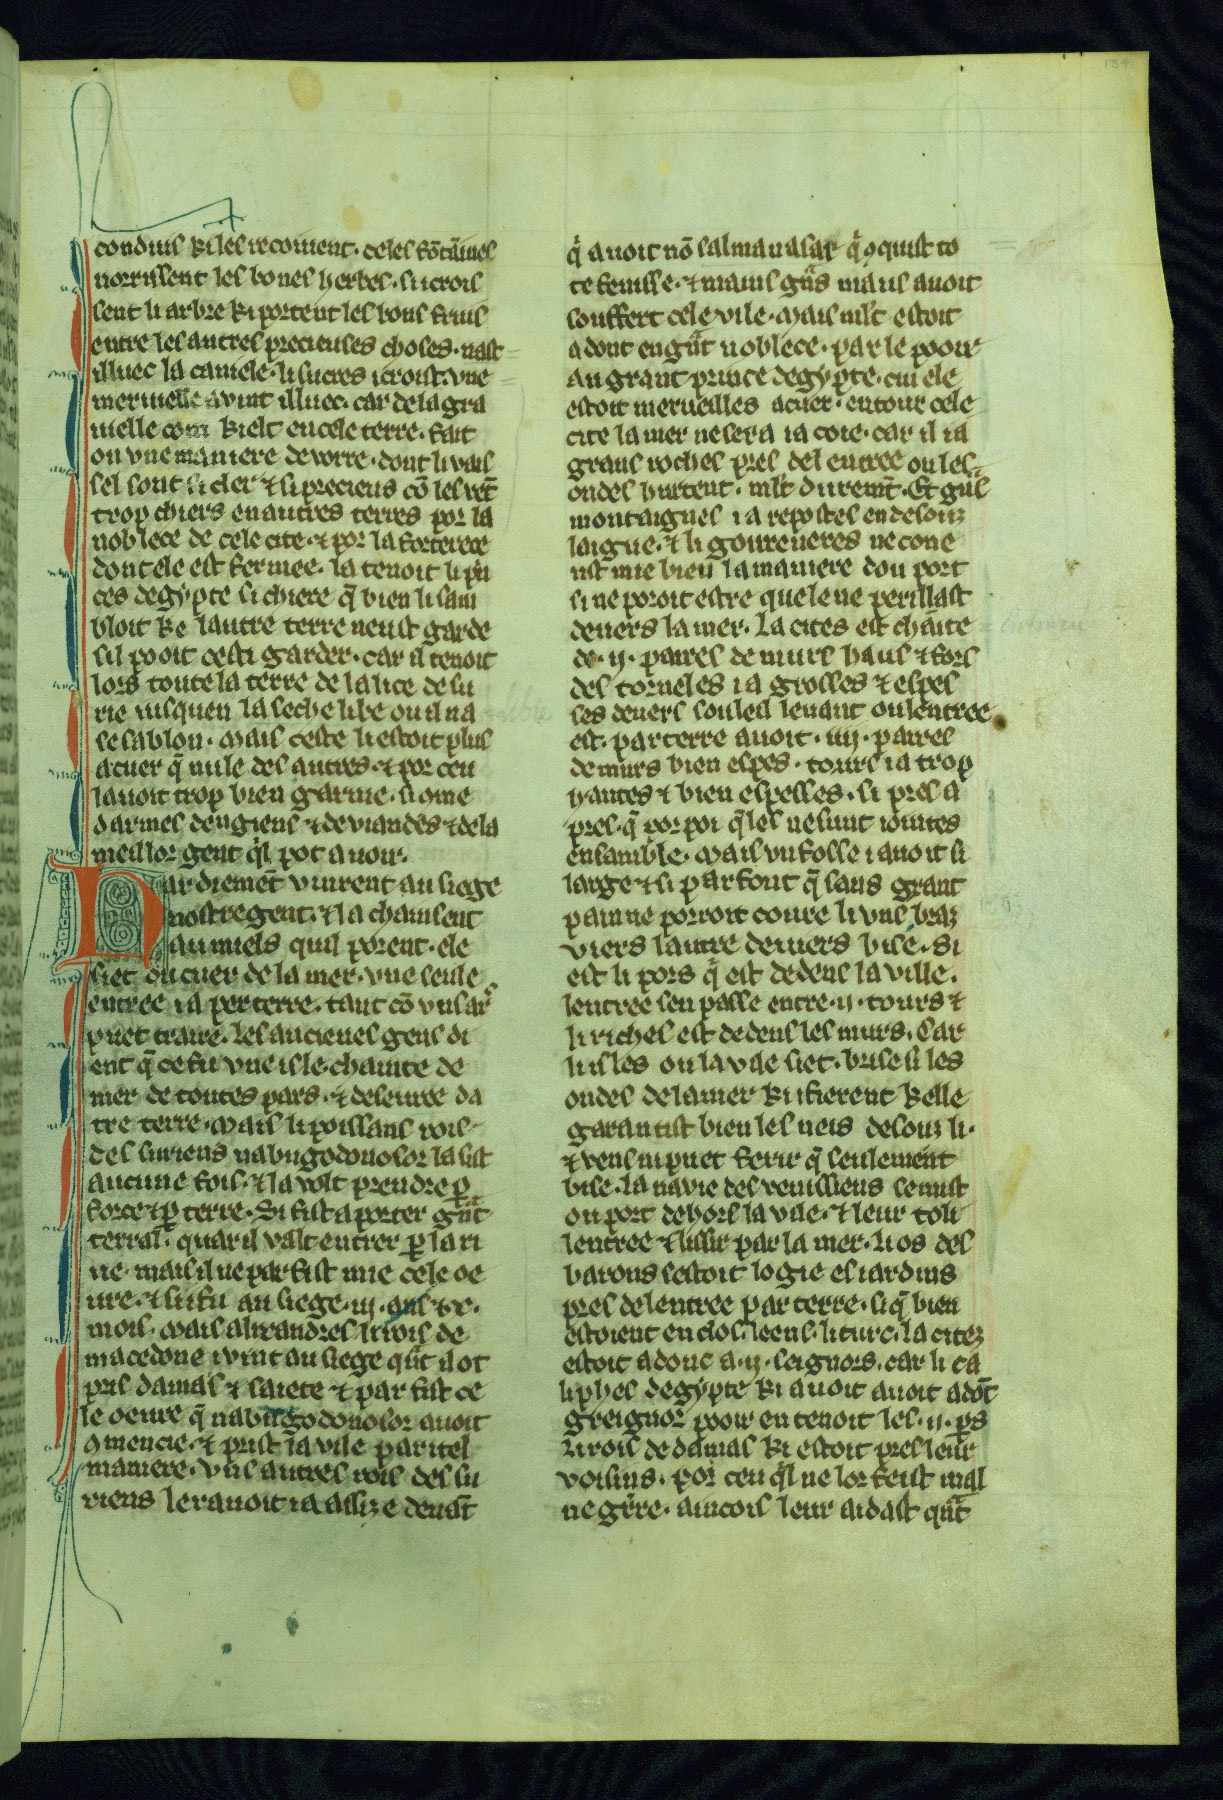 conduis ki les recoiuent. celes fōtāines
norrissent les bones herbes. si i crois
sent li arbre ki portent les bons fruis
entre les autres precieuses choses. nast
illuec la camele. li sucres i croist. vne
merueille auint illuec. car de la gra
uelle com ki est en cele terre. fait
on vne maniere de voirre. dont li vais
sel sont si cler ⁊ si precieus cō les vēt
trop chiers en autres terres por la
noblece de cele cite. ⁊ por la forterece
dont ele est fermee. la tenoit li pⁱn
ces degypte si chiere q̄ bien li sam
bloit ke lautre terre neust garde
sil pooit cesti garder. car il tenoit
lors toute la terre de la lice de su
rie iusquen la seche libe ou il na
se sablon. Mais ceste li estoit plus
a cuer q̄ nule des autres. ⁊ por ceu
lauoit trop bien garnie. si ome
darmes dengiens ⁊ de viandes ⁊ de la
meillor gent qⁱl pot auoir.
Hardiemēt vinrent au siege
nostre gent. ⁊ la chainsent
au miels quil porent. ele
siet ou cuer de la mer. vne seule
entree i a per terre. tant cō vns ars
puet traire. Les ancienes gens di
ent q̄ ce fu vne isle. chainte de
mer de toutes pars. ⁊ deseuree da
tre terre. Mais li poissans rois
des suriens nabugodonosor la sist
aucune fois. ⁊ la volt prendre ꝑ
force ⁊ ꝑ terre. Si fist aporter gᵃnt
terral. quar il valt entrer ꝑ la ri
ue. mais il ne parfist mie cele oe
ure. ⁊ si i fu au siege .iij. ans ⁊ .x.
mois. Mais alixandres li rois de
macedone i vint au siege qᵃnt il ot
pris damas ⁊ saiete ⁊ parfist ce
le oeure q̄ nabugodonosor auoit
ꝯmencie. ⁊ prist la vile par itel
maniere. Vns autres rois des su
riens le rauoit ia assize deuāt
qⁱ auoit nō salmanasar qⁱ ꝯquist to
te fenisse. ⁊ mains gᵃns maus auoit
souffert cele vile. Mais mlt estoit
adont en gᵃnt noblece. par le pooir
au grant prince degypte. cui ele
estoit merueilles a cuer. entour cele
cite la mer ne sera ia coie. car il i a
grans roches pres del entree ou les
ondes hurtent. mlt duremt̄. Et gᵃns
montaignes i a repostes en desouz
laigue. ⁊ li goureneres ne cone
ust mie bien la maniere dou port
si ne poroit estre quele ne perillast
deuers la mer. La cites est chaite
de .ij. paires de murs haus ⁊ fors
des torneles i a grosses ⁊ espes
ses deuers souleil leuant ou lentree
est. par terre auoit .iiij. paires
de murs bien espes. tours i a trop
hautes ⁊ bien espesses. si pres a
pres. q̄ por poi qⁱles ne sunt iointes
ensamble. Mais vn fosse i auoit si
large ⁊ si parfont q̄ sans grant
painne porroit corre li vns braz
viers lautre deuiers bise. Si
est li pors qⁱ est dedens la ville.
lentree sen passe entre .ij. tours ⁊
li riches est dedens les murs. Car
li isles ou la vile siet. brise si les
ondes de la mer ki i fierent kelle
garantist bien les neis desouz li.
⁊ vens ni puet ferir q̄ seulement
bise. la nauie des venissiens se mist
ou port dehors la vile. ⁊ leur toli
lentree ⁊ lissir par la mer. Li os des
barons sestoit logie es iardins
pres del entree par terre. si q̄ bien
estoient enclos. leens. li turc. la citez
estoit adonc a .ij. seignors. car li ca
liphes degypte ki auoit auoit adōt
greignor pooir en tenoit les .ij. pˢ
Li rois de damas ki estoit pres leur
voisins. por ceu qⁱl ne lor feist mal
ne gᵉrre. aincois leur aidast qᵃnt